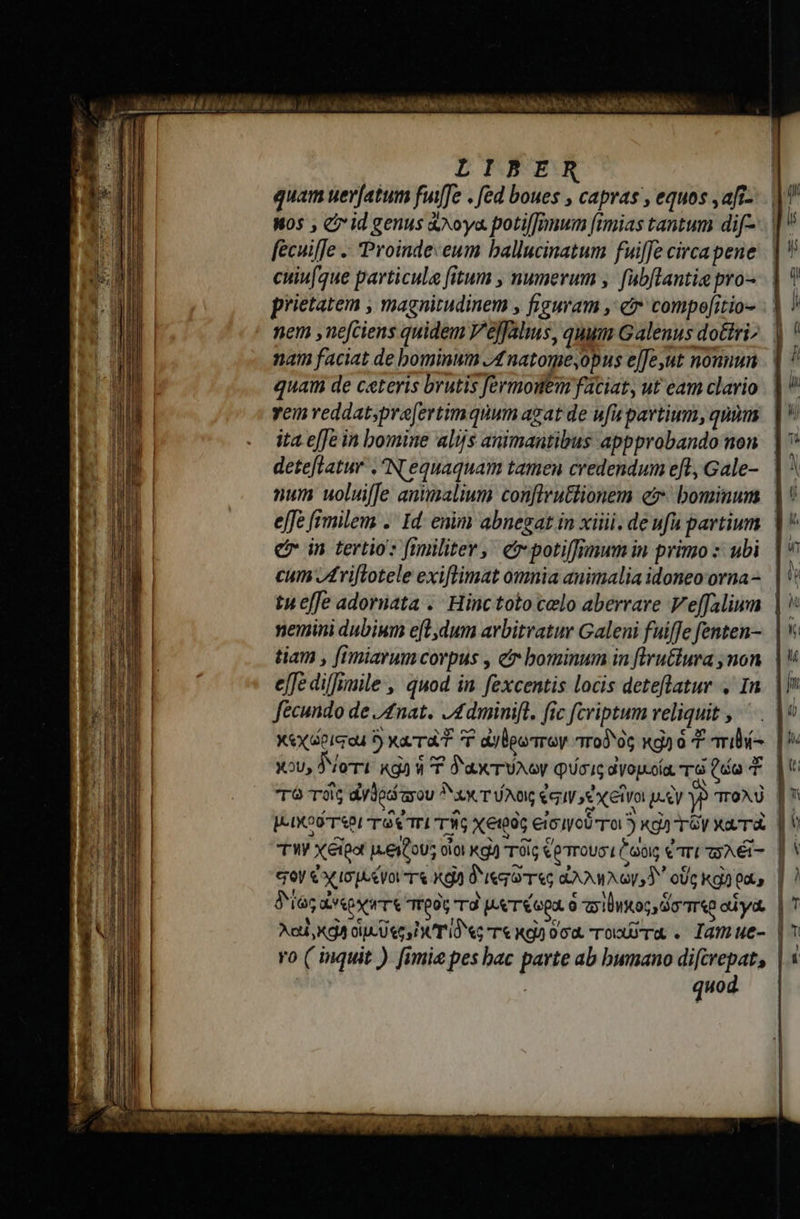 LIBER
quam uerſatum fuiſſe . ſed boues , capras , equos , aſi-
nos , & id genus ἄλογα potiſſimum ſimias tantum diſ-
ſecuiſſe . Proinde eum hallucinatum fuiſſe circa pene
cuiuſque particulæ ſitum , numerum , ſubſtantiæ pro-
prietatem , magnitudinem , figuram , & compoſitio-
nem , neſciens quidem Veſſalius, quum Galenus doctri-
nam faciat de hominum Anatome, opus eſſe, ut nonnun
quam de cæteris brutis ſermonem faciat, ut eam clario
rem reddat, præſertim quum agat de uſu partium, quùm
ita eſſe in homine alijs animantibus appprobando non
deteſtatur . Nequaquam tamen credendum eſt, Gale-
num uoluiſſe animalium conſtructionem & hominum
eſſe ſimilem . Id enim abnegat in xiiii. de uſu partium
& in tertio : ſimiliter , & potiſſimum in primo : ubi
cum Ariſtotele exiſtimat omnia animalia idoneo orna-
tu eſſe adornata . Hinc toto cœlo aberrare Veſſalium
nemini dubium eſt, dum arbitratur Galeni fuiſſe ſenten-
tiam , ſimiarum corpus , & hominum in ſtructura , non
eſſe diſſimile , quod in ſexcentis locis deteſtatur . In
ſecundo de Anat. Adminiſt. ſic ſcriptum reliquit ,
κεχώρισαι ὃ κατὰ τ τ ἀνθρώπων ποδὸς καὶ ὁ τ πιθή-
κου, διότι καὶ ἡ τ δακτύλων φύσις ἀνομοία τῷ ζώῳ τ
τῷ τοῖς ἀνθρώπου δακτύλοις ἐστιν, ἐκεῖνοι μὲν γὸ πολὺ
μικρότεροι τῶ ἐπι τῆς χειρὸς εἰσιν οὗτοι ὃ καὶ τῶν κατὰ
τὴν χεῖρα μείζους οἷοι καὶ τοῖς ἕρπουσι ζώοις ἐπι πλεῖ-
στον ἐσχισμένοι τε καὶ διεστῶτες ἀλλήλων, δι' οὓς καὶ ῥα,
δίως ἀνέρχατε πρὸς τὰ μετέωρα ὁ πίθηκος, ὥσπερ αἴγα
λαῖ, καὶ οἱ μῦες, ἰκτίδες τε καὶ ὅσα τοιαῦτα . Iam ue-
ro ( inquit ) ſimiæ pes hac parte ab humano diſcrepat,
quod